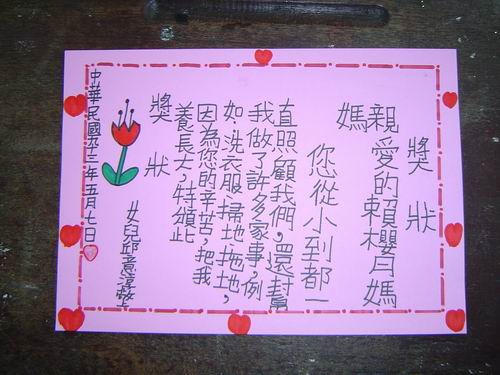 獎狀
親愛的賴櫻月媽
媽
您從小到都一
直照顧我們,還幫
我做了許多家事,例
如:洗衣服、掃地、拖地,
因為您的辛苦,把我
養長大,特頒此
獎狀
女兒邱意
中華民國九十三年五月七日